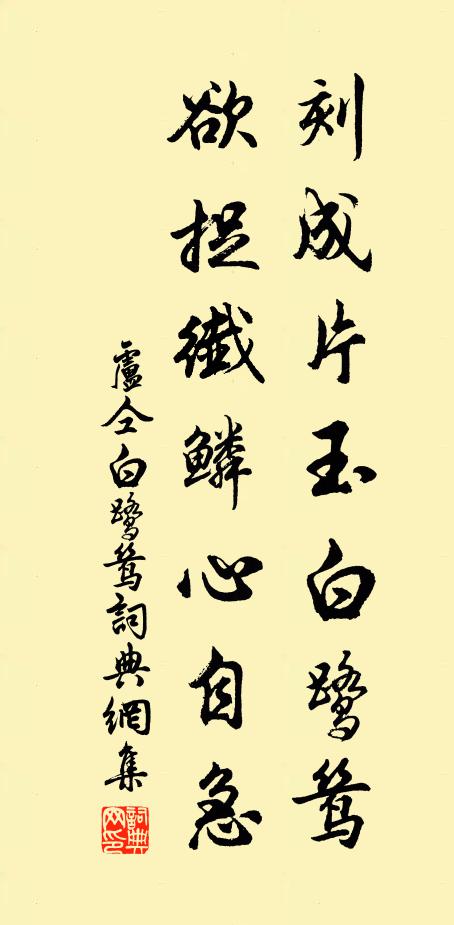 刻成片玉白鹭鸶
欲捉纖鱗心自急
盧仝白鹭鸶詞典網集
詞典網印